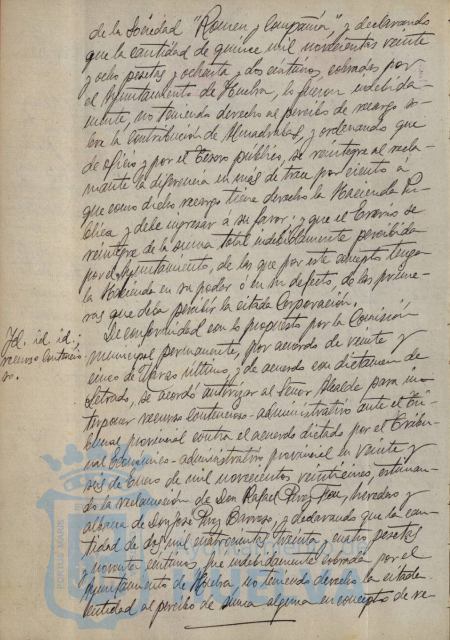 de la Sociedad "Romeu y Compañía", y declarando
que la cantidad de quince mil novecientas veinte
y ocho pesetas y ochenta y dos céntimos, cobradas por
el Ayuntamiento de Huelva, lo fueron indebida-
mente, no teniendo derecho al percibo de recargo so-
bre la contribución de Almadrabas, y ordenando que
de oficio y por el Tesoro público, se reintegre al recla-
mante la diferencia en más de trece por ciento á
que como dicho recargo tiene derecho la Hacienda Pú-
blica y debe ingresar a su favor; y que el Erario se
reintegre de la suma total indebidamente percibida
por el Ayuntamiento, de las que por este concepto tenga
la Hacienda en su poder ó en su defecto, de las prime-
ras que deba percibir la citada Corporación.
Id. id. id.;
recurso contencio-
so.
De conformidad con lo propuesto por la Comisión
municipal permanente, por acuerdo de veinte y
cinco de Marzo último y de acuerdo con dictamen de
Letrado, se acordó autorizar al Señor Alcalde para in-
terponer recurso contencioso-administrativo ante el Tri-
bunal provincial contra el acuerdo dictado por el Tribu-
nal Económico-administrativo provincial en veinte y
seis de Enero de mil novecientos veinticinco, estiman-
do la reclamación de Don Rafael Pérez, heredero y
albacea de Don José Pérez Barroso, y declarando que la can-
tidad de dos mil cuatrocientas treinta y cuatro pesetas
y noventa céntimos, fue indebidamente cobrada por el
Ayuntamiento de Huelva, no teniendo derecho la citada
entidad al percibo de suma alguna en concepto de re-
PORTUS MARIS
Ayuntamiento de
HUELVA